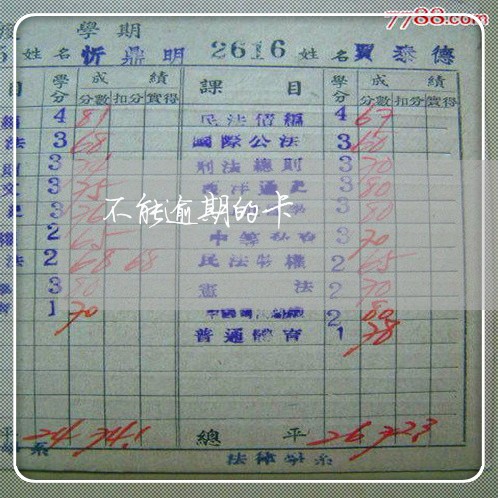 7788.com
學 期
5 姓名 忻鼎明 2616 姓名 賈泰德
目 學分 成績 課目 學分 成績
分數 扣分 實得 分數 扣分 實得
4 81 民法債編 4 67
法 3 68 國際公法 3 60
3 刑法總則 3 70
3 75 西洋通史 3 80
3 3 80
不能逾期的卡
2 65 3 70
法 2 68 68 民法物權 2 65
3 80 憲法 2 70
1 70 2 80
普通體育 1 78
平 24 74.1 總平 26 72.3
系 法律學系